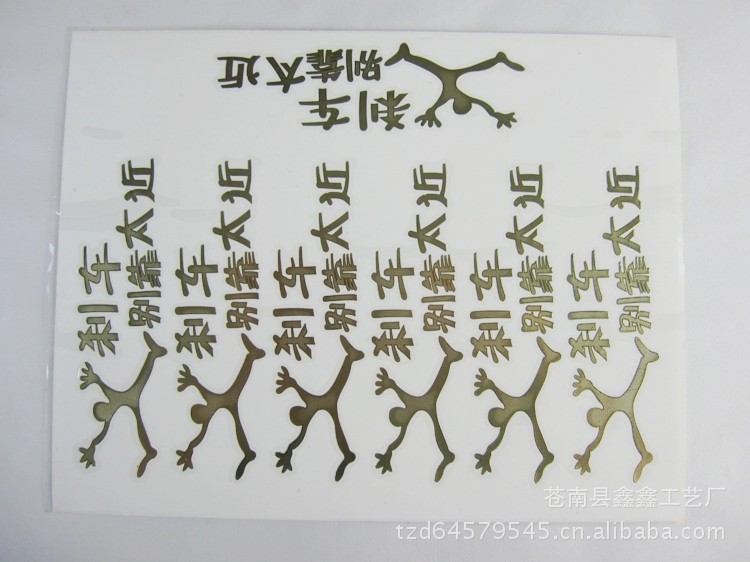 刹车
别靠太近
刹车
别靠太近
刹车
别靠太近
刹车
别靠太近
刹车
别靠太近
刹车
别靠太近
刹车
别靠太近
苍南县鑫鑫工艺厂
tzd64579545.cn.alibaba.com